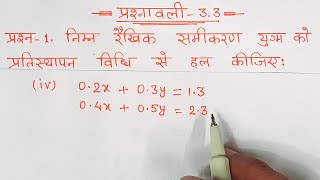 प्रश्नावली-3.3
प्रश्न-1. निम्न रैखिक समीकरण युग्म को
प्रतिस्थापन विधि से हल कीजिए:
(iv) 0.2x + 0.3y = 1.3
0.4x + 0.5y = 2.3